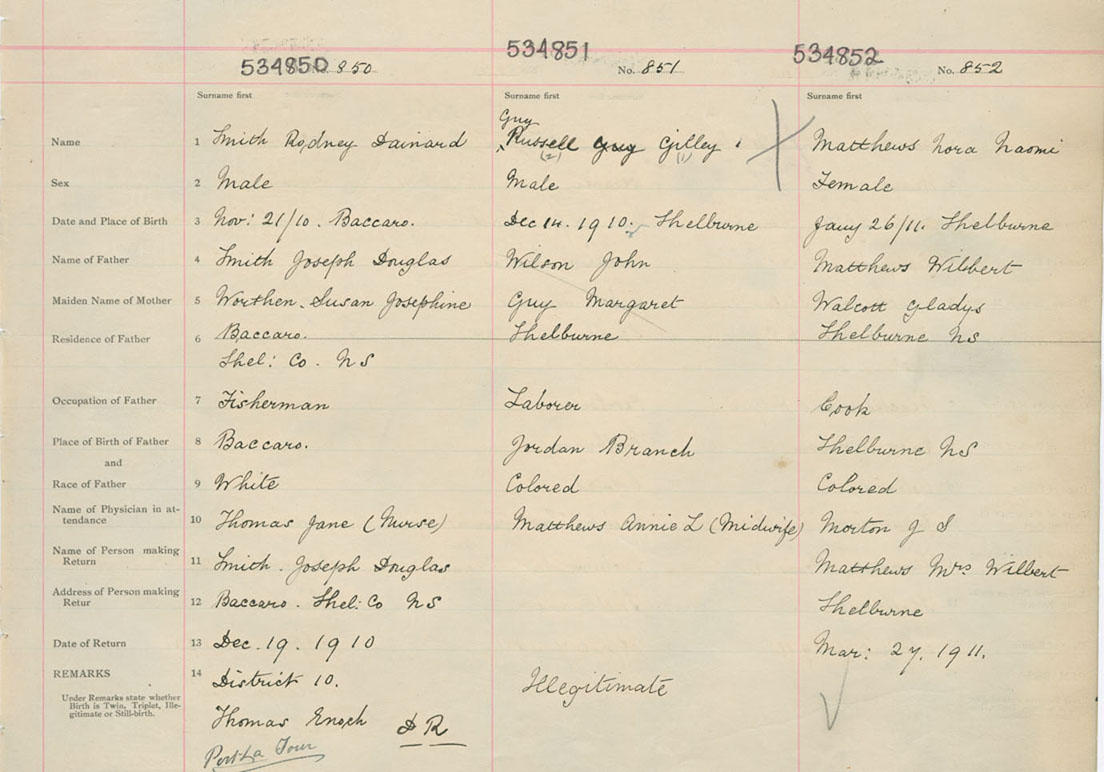 534850 850
534851 No. 851
534852 No. 852
Surname first
Surname first
Surname first
Guy
Name 1 Smith Rodney Dainard
Russell Guy Gilley
(2) (1)
Matthews Nora Naomi
Sex 2 Male Male Female
Date and Place of Birth 3 Nov: 21/10. Baccaro. Dec 14. 1910. Shelburne Jany 26/11. Shelburne
Name of Father 4 Smith Joseph Douglas Wilson John Matthews Wilbert
Maiden Name of Mother 5 Worthen. Susan Josephine Guy Margaret Walcott Gladys
Residence of Father 6 Baccaro. Shelburne Shelburne NS
Shel: Co. NS
Occupation of Father 7 Fisherman Laborer Cook
Place of Birth of Father 8 Baccaro. Jordan Branch Shelburne NS
and
Race of Father 9 White Colored Colored
Name of Physician in at-
tendance 10 Thomas Jane (Nurse) Matthews Annie L (Midwife) Morton J S
Name of Person making
Return 11 Smith. Joseph Douglas Matthews Mrs Wilbert
Address of Person making
Retur 12 Baccaro. Shel: Co NS Shelburne
Date of Return 13 Dec. 19. 1910 Mar: 27. 1911.
REMARKS 14 District 10. Illegitimate
Under Remarks state whether
Birth is Twin, Triplet, Ille-
gitimate or Still-birth.
Thomas Enoch D R